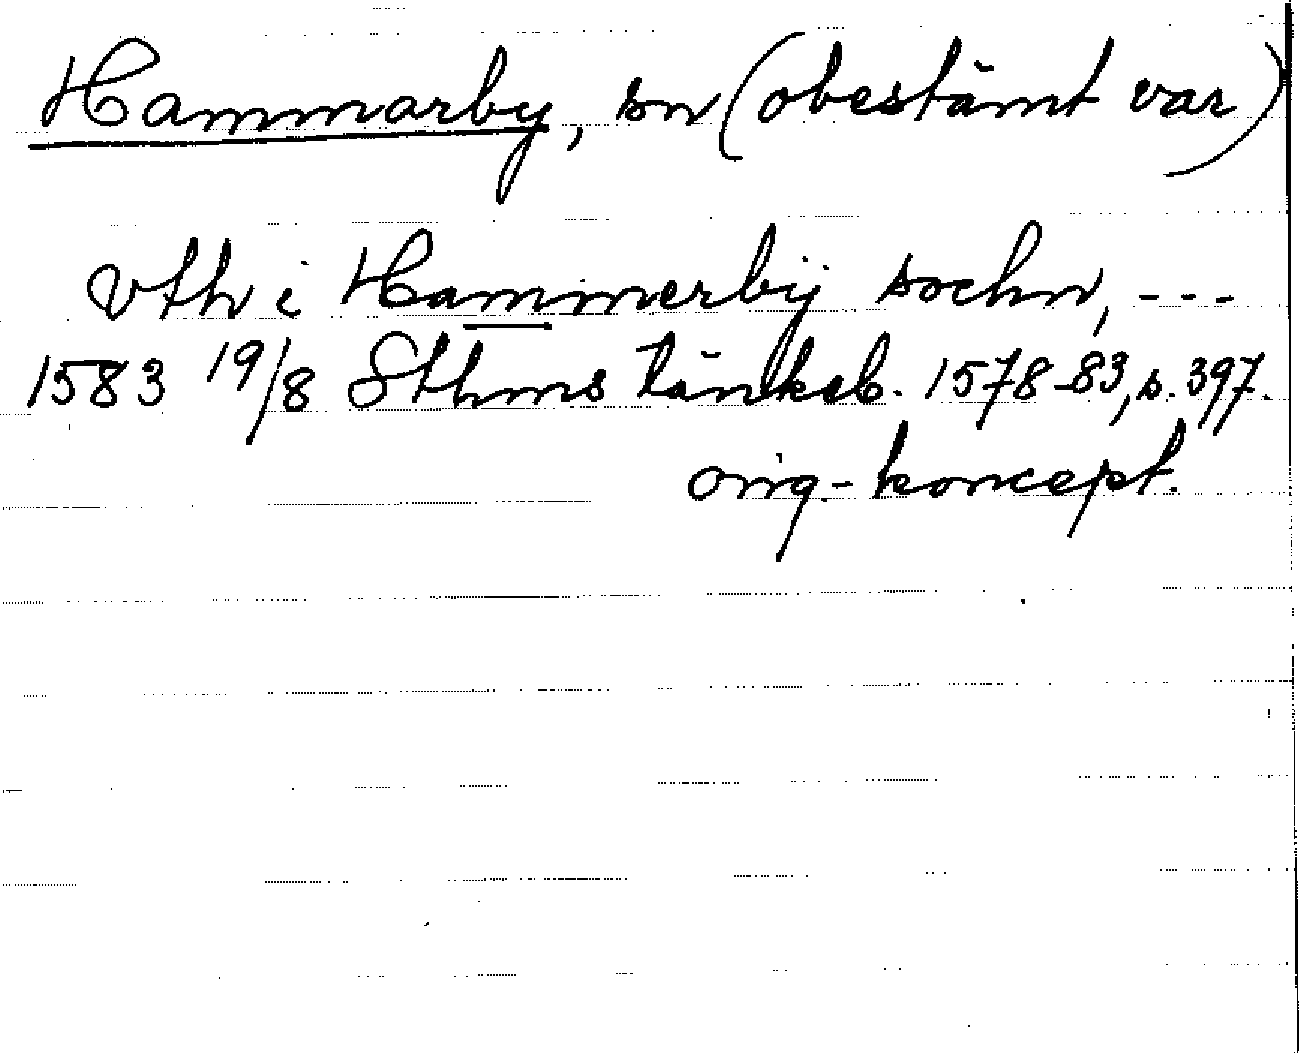 Hammarby, sn (obestämt var)
vth i Hammerbij sochn, ---
1583 19/8 Sthms tänkeb. 1578-83, s. 397.
orig.-koncept.